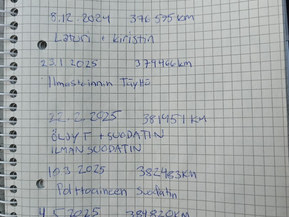 8.12.2024 376 575 km
Laturi + kiristin
23.1.2025 379466 km
Ilmastoinnin Täyttö
22.2.2025 381451 KM
ÖLJYT + SUODATIN
ILMANSUODATIN
10.3.2025 382483km
Polttoaineen Suodatin
4.5.2025 384820KM